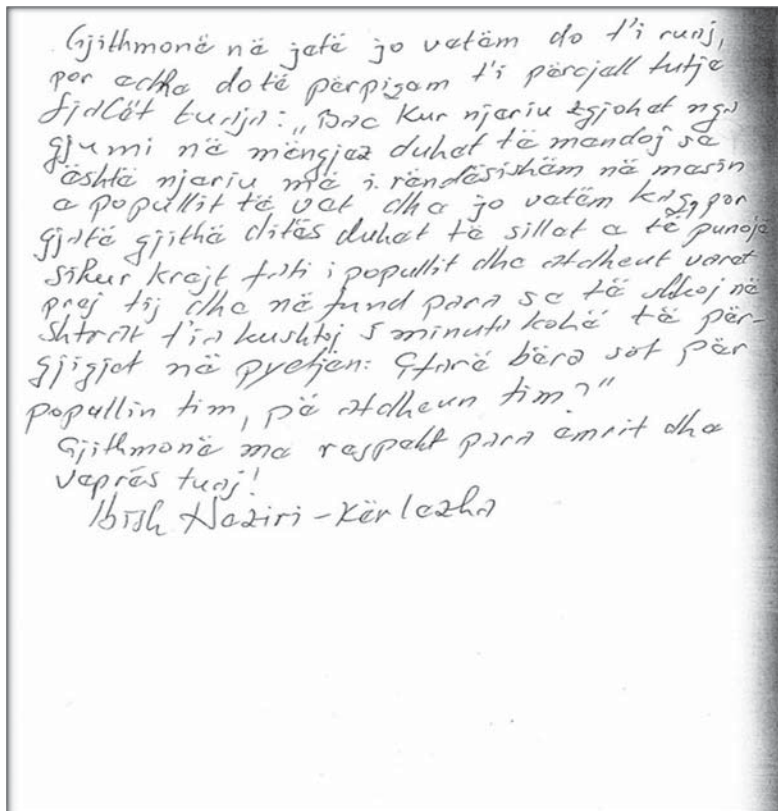 Gjithmonë në jetë jo vetëm do t'i ruaj,
por edhe do të përpiqem t'i përcjell tutje
fjalët tuaja: „Bac kur njeriu zgjohet nga
gjumi në mëngjez duhet të mendoj se
është njeriu më i rëndësishëm në mesin
e popullit të vet dhe jo vetëm kaq, por
gjatë gjithë ditës duhet të sillet e të punojë
sikur krejt fati i popullit dhe atdheut varet
prej tij dhe në fund para se të shkoj në
shtrat t'ia kushtoj 5 minuta kohë të për-
gjigjet në pyetjen: Çfarë bëra sot për
popullin tim, pë atdheun tim?"
Gjithmonë me respekt para emrit dhe
veprës tuaj!
Ibish Neziri - Kërlezha